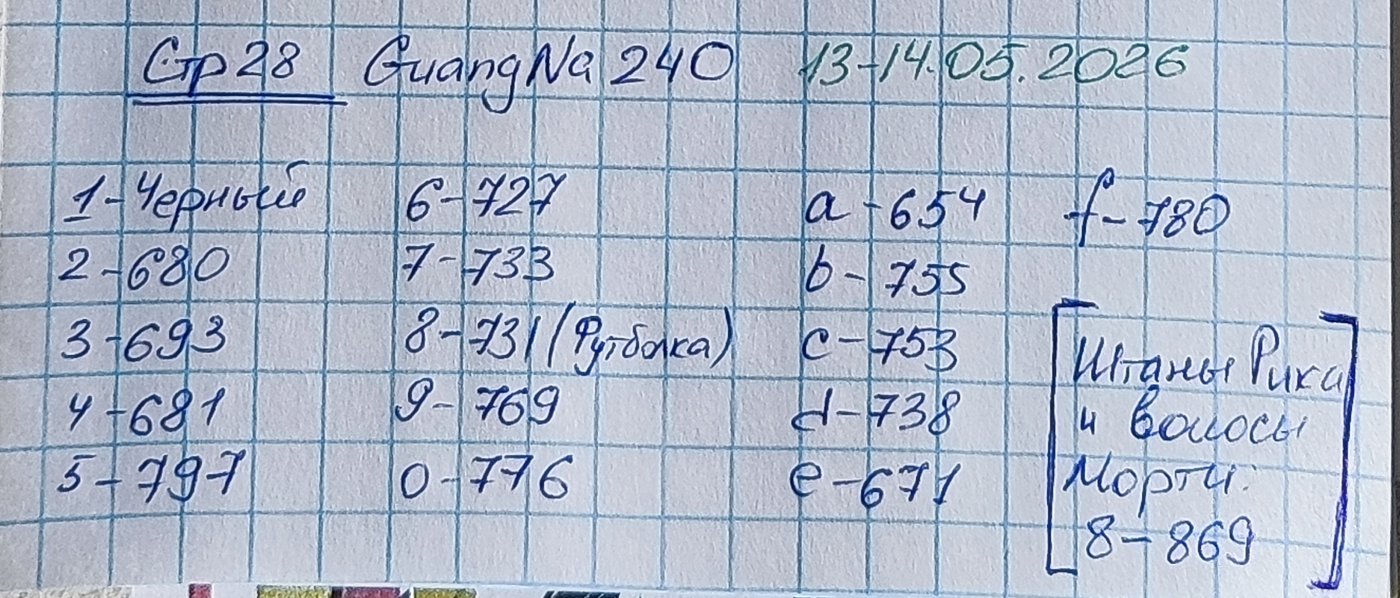 Стр 28 GuangNa 240 13-14.05.2026
1-Черный
2-680
3-693
4-681
5-797
6-727
7-733
8-731 (Футболка)
9-769
0-776
a-654
b-755
c-753
d-738
e-671
f-780
[Штаны Рика
и волосы
Морти:
8-869]